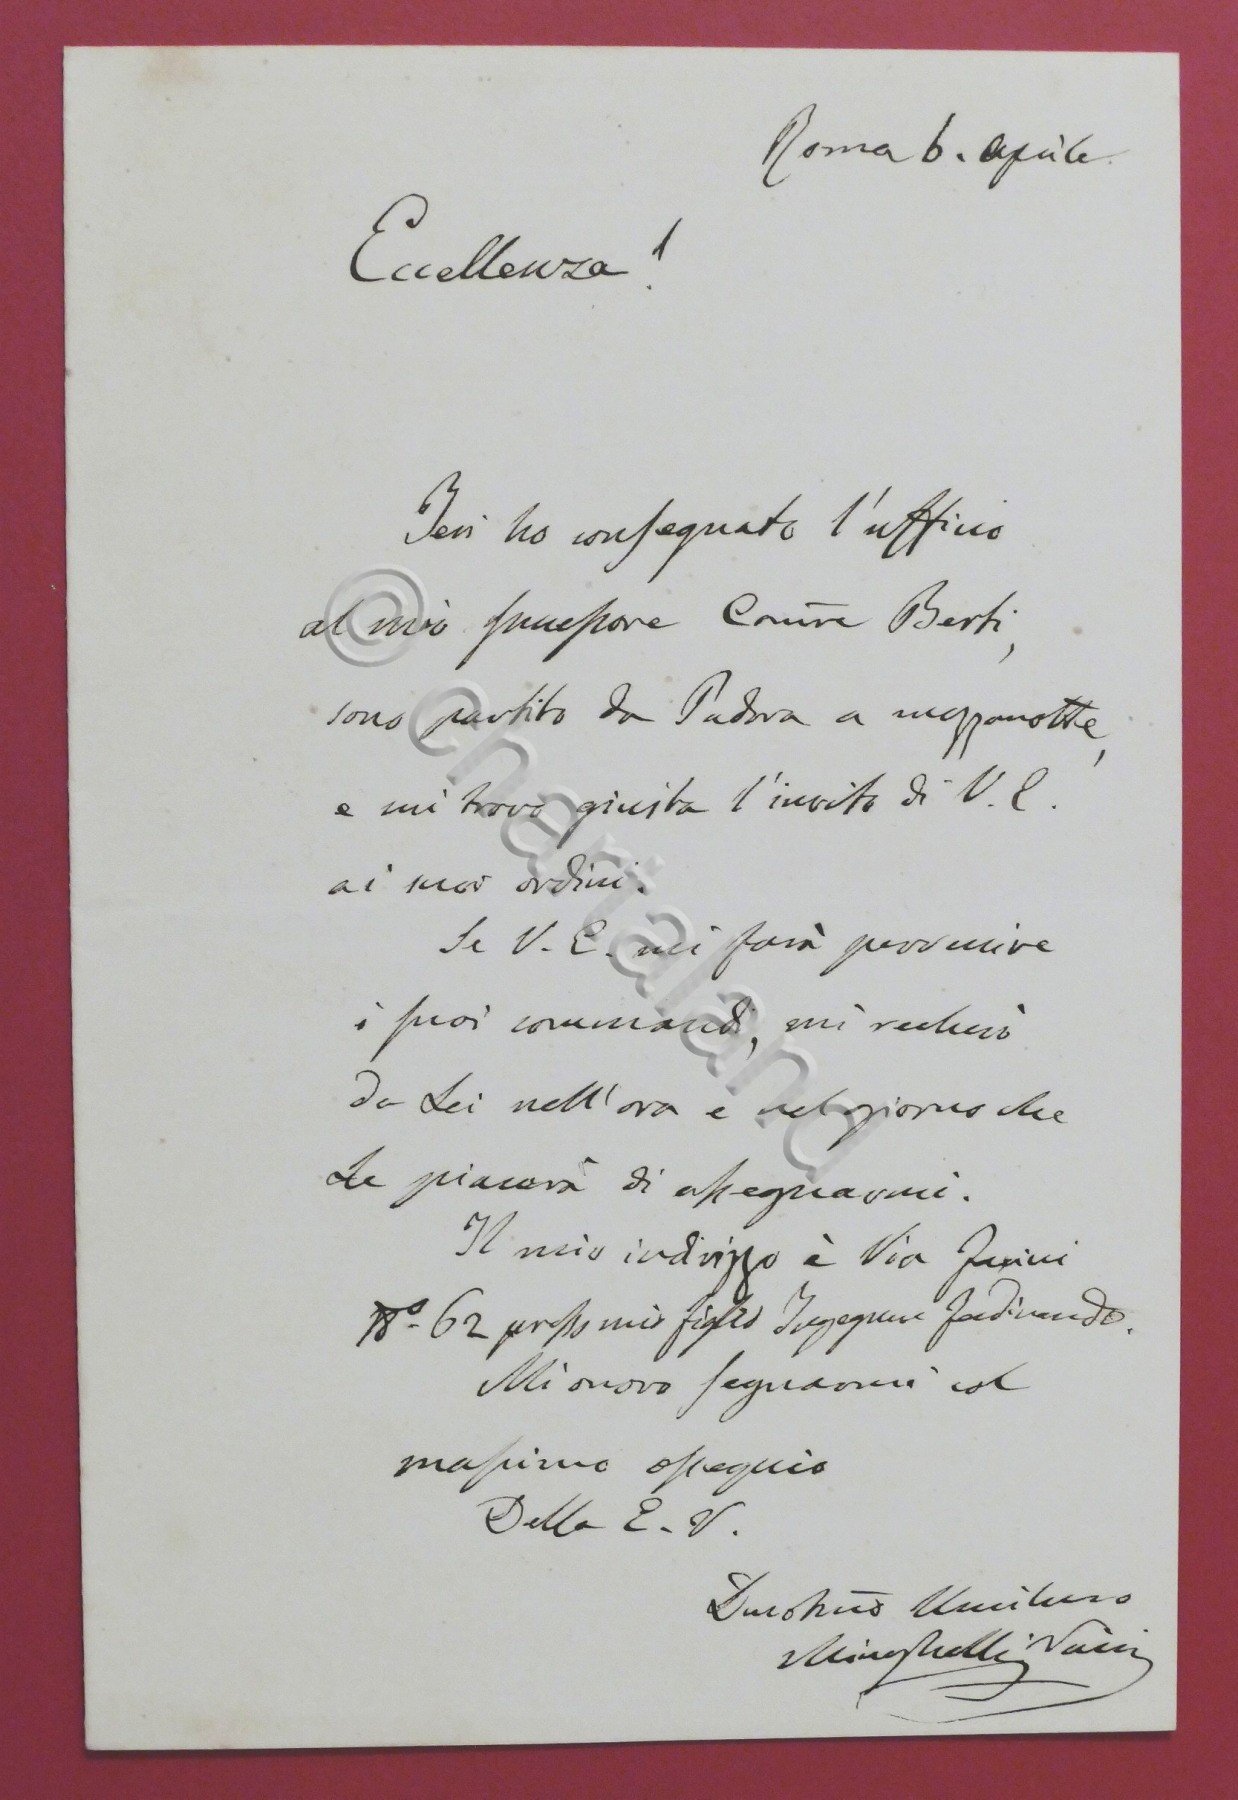 Roma 6. aprile
Eccellenza!
Jeri ho consegnato l'ufficio
al mio successore Comre Berti,
sono partito da Padova a mezzanotte,
e mi trovo giusta l'invito di V. E.
ai suoi ordini.
Se V. E. mi farà pervenire
i suoi commandi, mi recherò
da Lei nell'ora e nel giorno che
Le piacerà di assegnarmi.
Il mio indirizzo è Via Farini
No. 62 presso mio figlio Ingegnere Ferdinando.
Mi onoro segnarmi col
massimo ossequio
Della E. V.
Devotmo
Minghelli Vaini
© chartaland